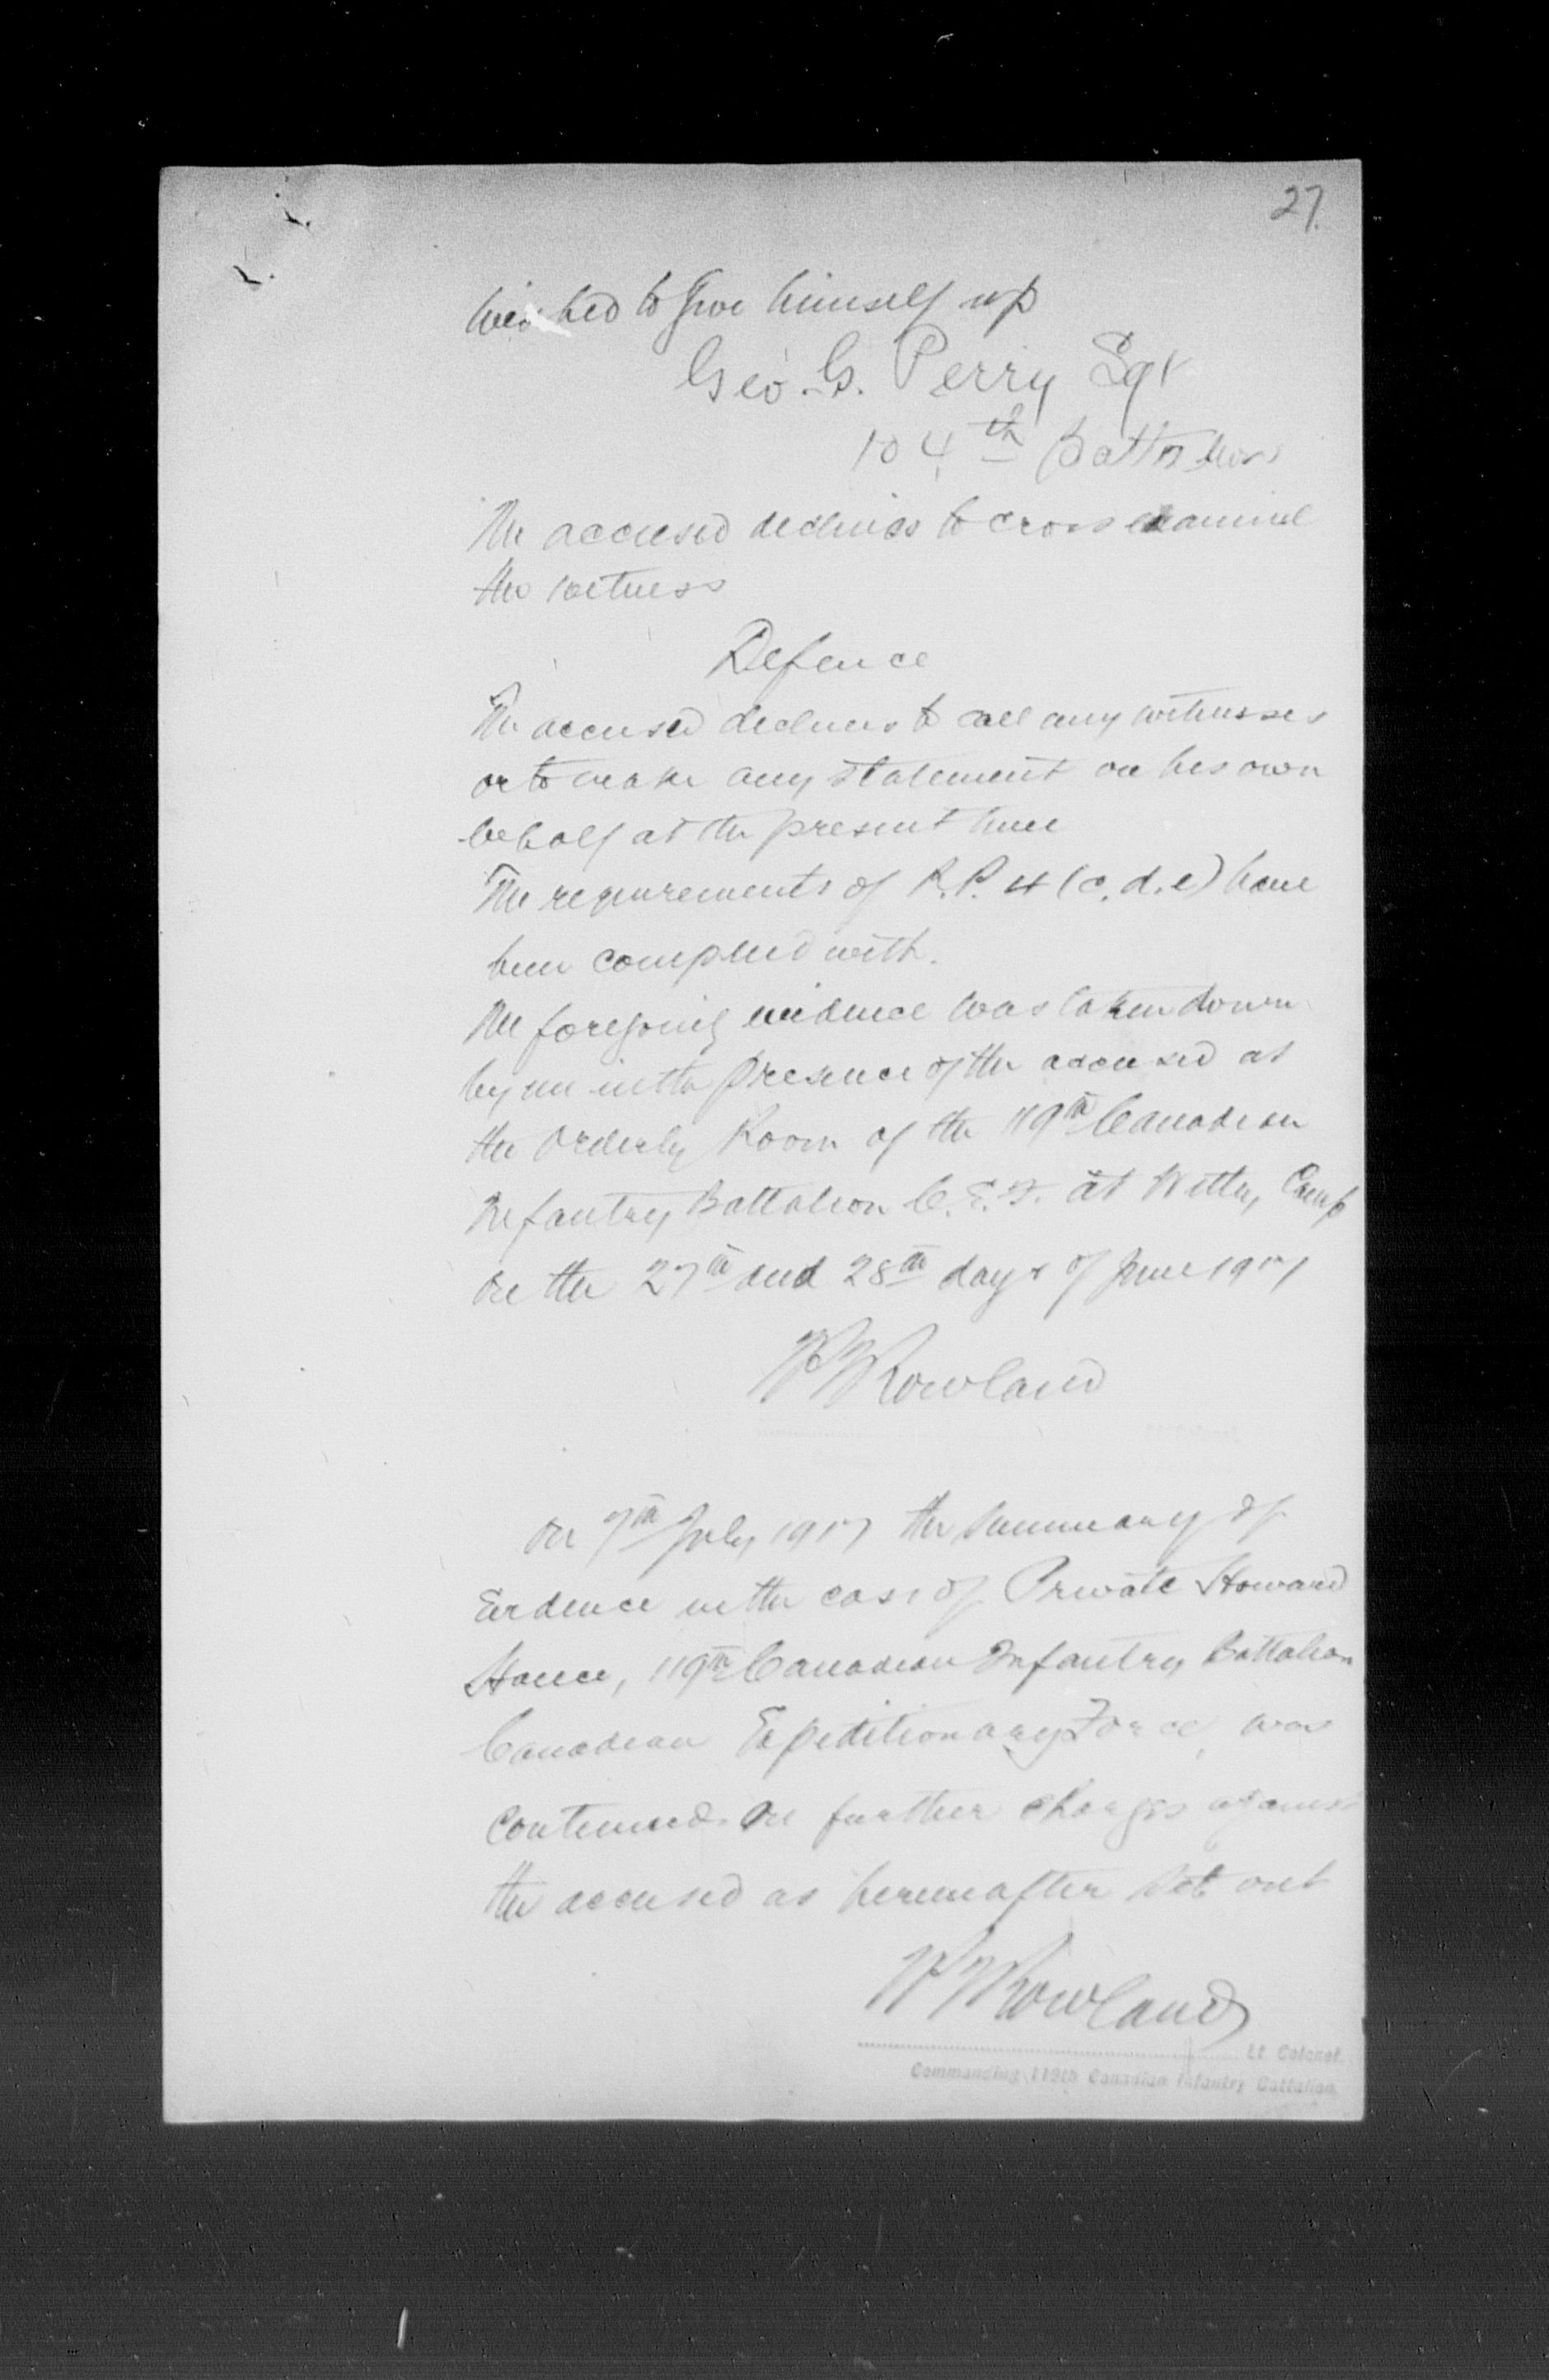 27.
wished to give himself up
Geo. G. Perry Sgt
104th Battalion
The accused declines to cross examine
the witness
Defence
The accused declines to call any witnesses
or to make any statement on his own
behalf at the present time
The requirements of R.P. 4 (c. d. e) have
been complied with.
The foregoing evidence was taken down
by me in the presence of the accused at
the Orderly Room of the 119th Canadian
Infantry Battalion C.E.F. at Witley Camp
on the 27th and 28th days of June 1917
Rowland
On 7th July 1917 the Summary of
Evidence in the case of Private Howard
119th Canadian Infantry Battalion
Canadian Expeditionary Force, was
continued on further charges against
the accused as hereinafter set out
Rowland
Lt. Colonel.
Commanding 119th Canadian Infantry Battalion.